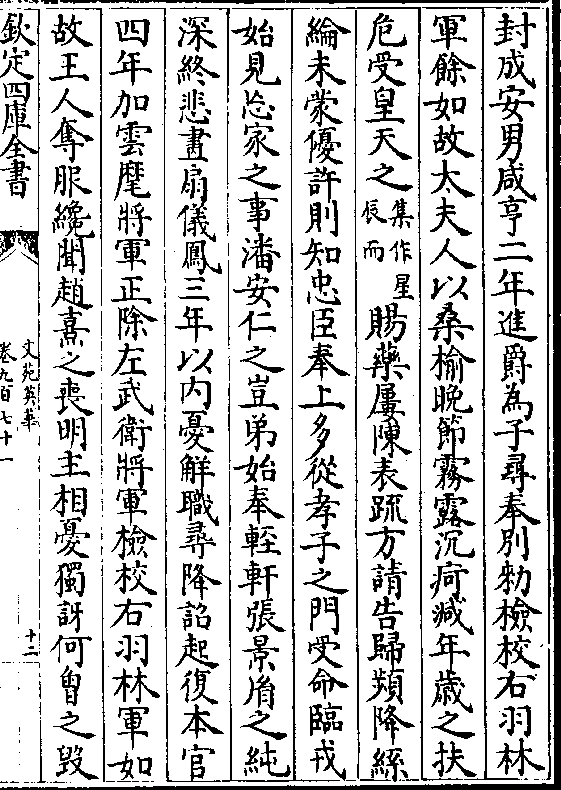 封成安男咸亨二年進爵為子尋奉别勑檢校右羽林
軍餘如故太夫人以桑榆晚節霧露沉疴減年歲之扶
危受皇天之集作星辰而賜藥屢陳表疏方請告歸蘋降絲
綸未蒙優許則知忠臣奉上多從孝子之門受命臨戎
始見忘家之事潘安仁之豈弟始奉輕軒張景𦙍之純
深終悲畫扇儀鳳三年以内憂解職尋降詔起復本官
四年加雲麾將軍正除左武衛將軍檢校右羽林軍如
故王人奪服纔聞趙熹之喪明主相憂獨訝何曽之毀
欽定四庫全書
文苑英華
卷九百七十一
十二